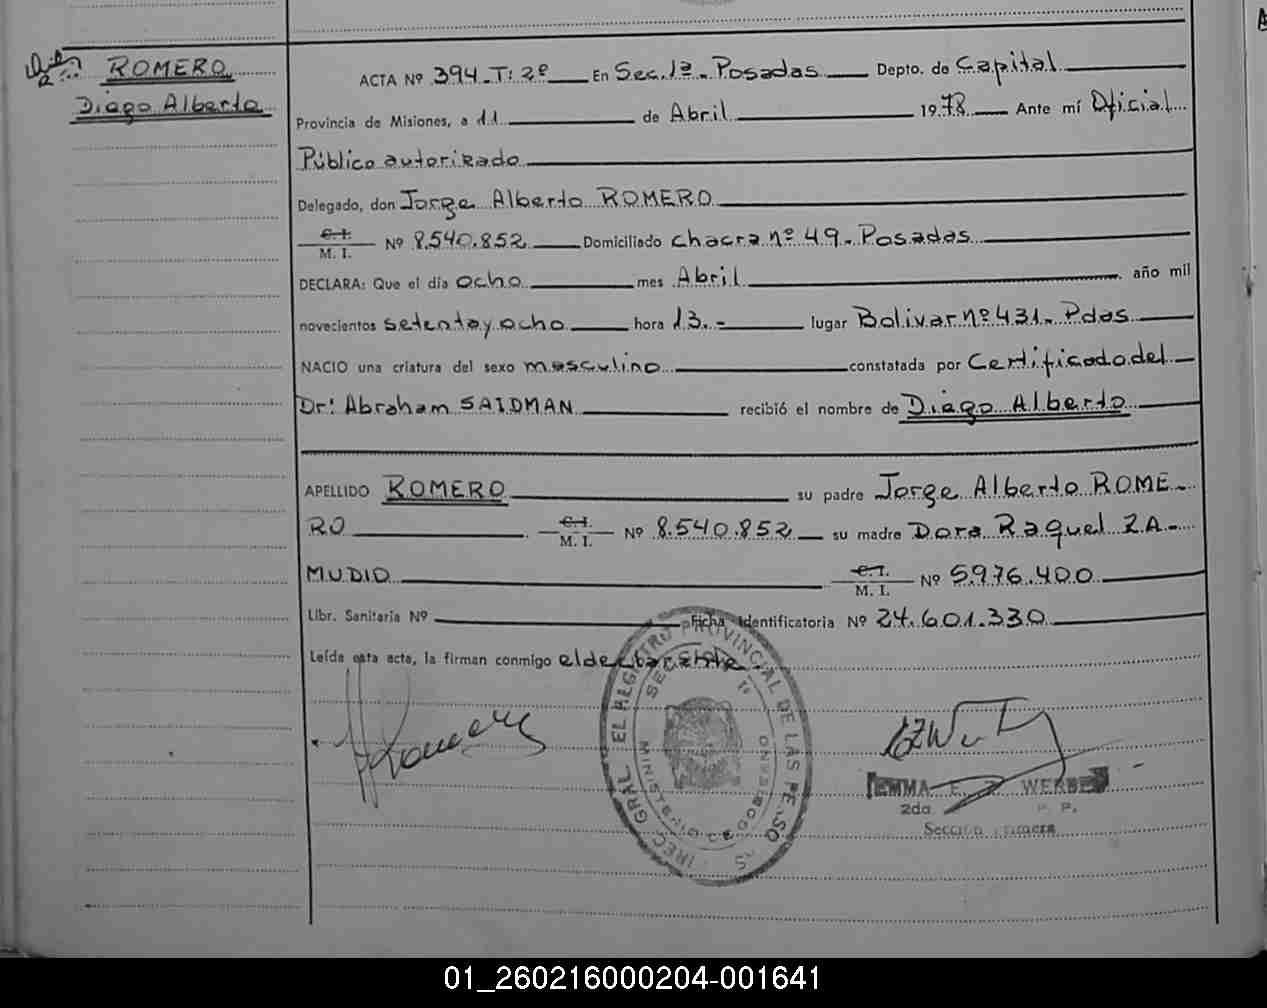 ROMERO
Diego Alberto
ACTA Nº 394-T: 2º En Sec. 1ª - Posadas Depto. de Capital
Provincia de Misiones, a 11 de Abril 1978 Ante mí Oficial
Público autorizado
Delegado, don Jorge Alberto ROMERO
C.I. M.I. Nº 8.540.852 Domiciliado chacra nº 49 - Posadas
DECLARA: Que el día ocho mes Abril año mil
novecientos setenta y ocho hora 13.- lugar Bolivar nº 431 - Pdas
NACIO una criatura del sexo masculino constatada por Certificado del
Dr: Abraham SAIDMAN recibió el nombre de Diego Alberto
APELLIDO ROMERO su padre Jorge Alberto ROME-
RO C.I. M.I. Nº 8.540.852 su madre Dora Raquel ZA-
MUDIO C.I. M.I. Nº 5.976.400
Libr. Sanitaria Nº Ficha Identificatoria Nº 24.601.330
Leída esta acta, la firman conmigo el declarante.
GRAL. EL REGISTRO PROVINCIAL DE LAS
MINISTERIO DE GOBIERNO
EMMA E. WERBE
2da P. P.
Sección Primera
01_260216000204-001641